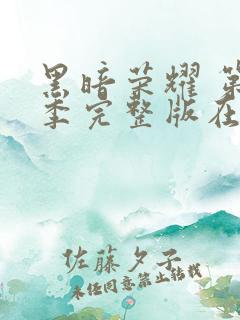 黑暗荣耀 第
季完整版在
佐藤夕子
未经同意禁止转载